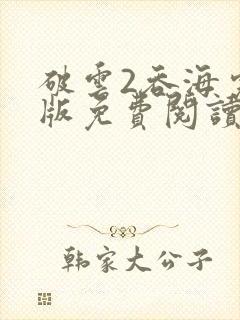 破雲2吞海
版免費閱讀
韩家大公子